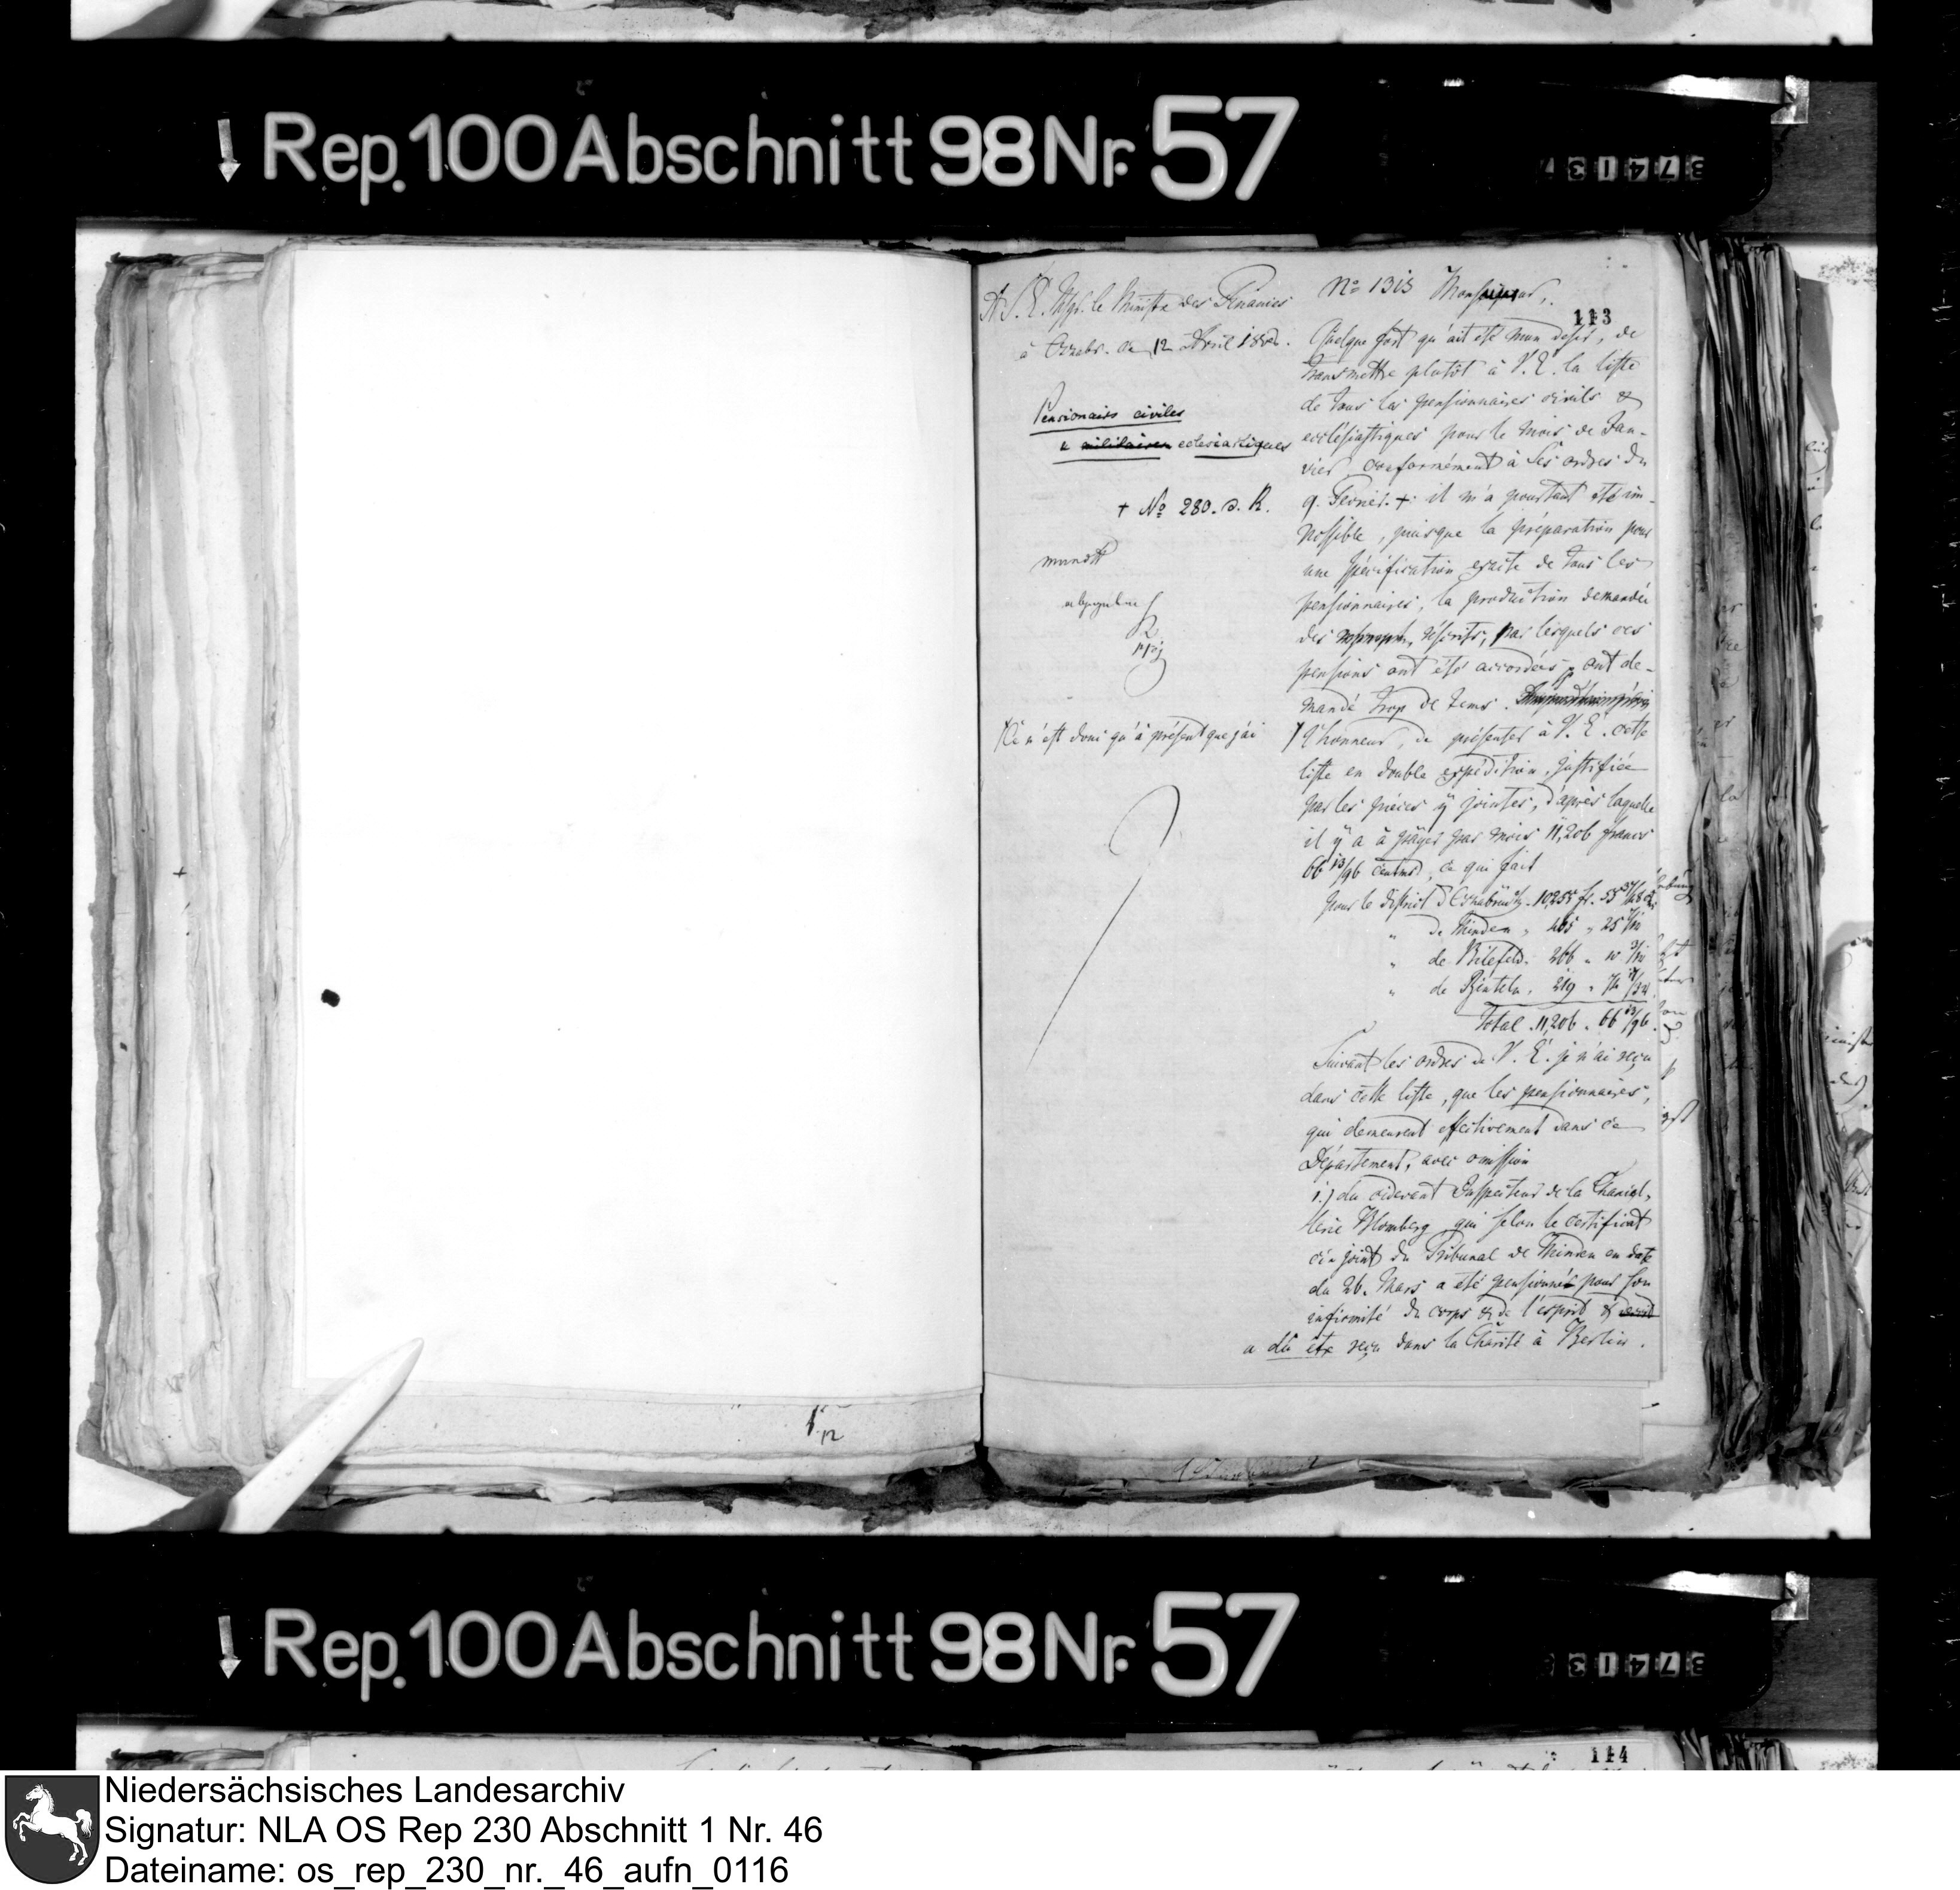 Rep. 100 Abschnitt 98 Nr. 57
113
A S. E. Msgr. le Ministre des Finances
à Osnabr. ce 12 Avril 1808.
Pensionairs civiles
& militaires ecclesiastiques
+ No 280. d. R.
mundt
Ce n'est donc qu'à présent que j'ai
No 1313 Monseigneur,
Quelque fort qu'ait été mon desir, de
transmettre plutôt à V. E. la liste
de tous les pensionnaires civils &
ecclésiastiques pour le mois de Jan-
vier conformément à Ses ordres du
9. Fevrier. + il m'a pourtant été im-
possible, puisque la préparation pour
une spécification exacte de tous les
pensionnaires, la production demandée
des rescrits, par lesquels ces
pensions ont été accordées, ont de-
mandé trop de tems.
l'honneur, de présenter à V. E. cette
liste en double expédition, justifiée
par les pièces ÿ jointes, d'après laquelle
il ÿ a à paÿer par mois 11,206 francs
66 13/96 centms, ce qui fait
pour le district d'Osnabrück. 10,255 fr. 55
" de Minden " 465 " 25
" de Bilefeld. 266 " 10
" de Rinteln. 219 " 74
Total. 11,206. 66 13/96.
Suivant les ordres de V. E. je n'ai reçu
dans cette liste, que les pensionnaires,
qui demeurent effectivement dans ce
Département, avec omission
1.) du cidevant Inspecteur de la Chancel-
lerie Blomberg qui selon le certificat
ci-joint du Tribunal de Minden en date
du 26. Mars a été pensionné pour son
infirmité du corps & de l'esprit &
a dû être reçu dans la Charité à Berlin.
1/12
Rep. 100 Abschnitt 98 Nr. 57
114
Niedersächsisches Landesarchiv
Signatur: NLA OS Rep 230 Abschnitt 1 Nr. 46
Dateiname: os_rep_230_nr._46_aufn_0116